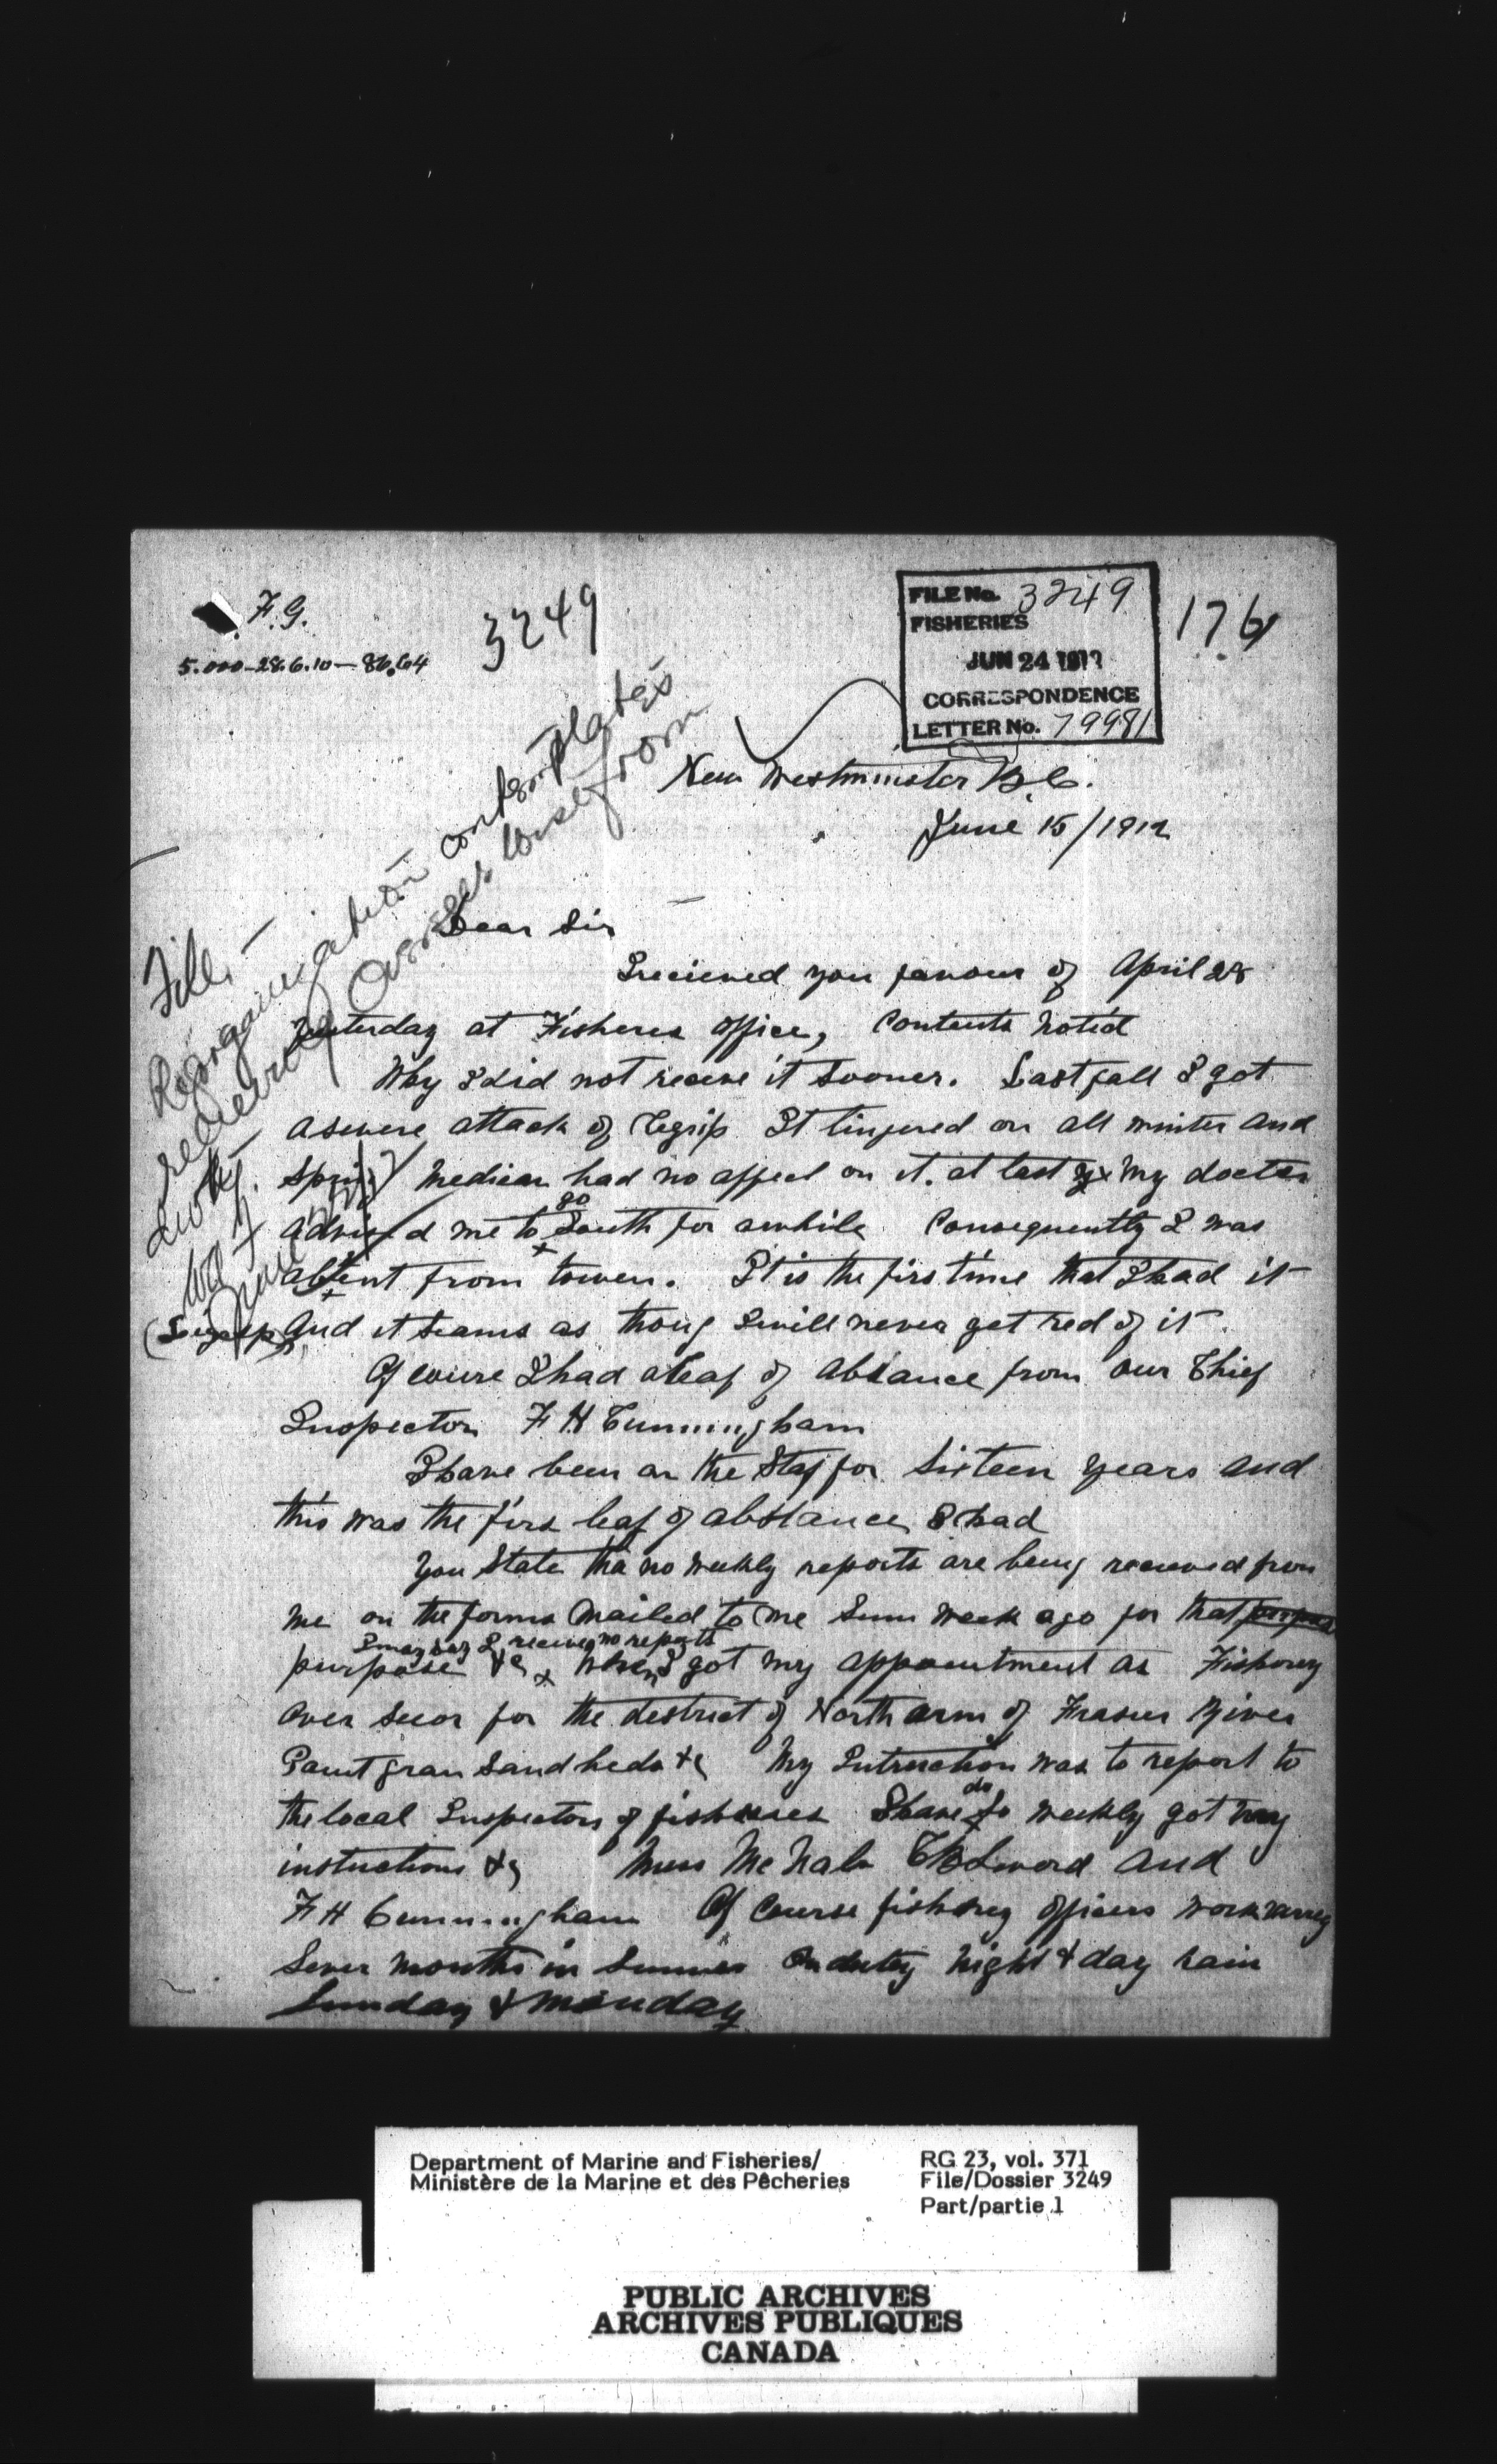 F.G.
5.000-28.6.10-86.64
3249
FILE No. 3249
FISHERIES
JUN 24 1912
CORRESPONDENCE
LETTER No. 79981
176
New Westminster B.C.
June 15/1912
File.
Reorganization contemplates
relieving Overseer from
duty.
Dear Sir
I recieved you favour of April 28
Yesterday at Fisheres office, Contents noted
Why I did not receve it sooner. Last fall I got
a severe attack of Legrip It lingered on all winter and
Spring Medican had no affect on it. at last my doctor
advised me to go South for awhile Consequently I was
absent from town. It is the firs time that I had it
(Legrip) and it seams as thoug I will never get red of it.
Of course I had a leaf of absance from our Chief
Inspector F H Cunningham
I have been on the Staf for Sixteen years and
this was the firs leaf of abstance I had
You State tha no weekly reports are being receeved from
me on the forms mailed to me Sum week ago for that
purpose &c I may say I receive no reports When I got my appointment as Fishery
Over seeor for the destrict of North arm of Fraser River
Point gray Sand heds &c My Intruction was to report to
the local Inspectors of fisheries I have do so weekly got my
instuctions &c Mess McNab C B Sword and
F H Cunningham Of Course fishery officers work varey
Seven months in Summer On dutey night & day rain
Sunday & monday
Department of Marine and Fisheries/
Ministère de la Marine et des Pêcheries
RG 23, vol. 371
File/Dossier 3249
Part/partie 1
PUBLIC ARCHIVES
ARCHIVES PUBLIQUES
CANADA